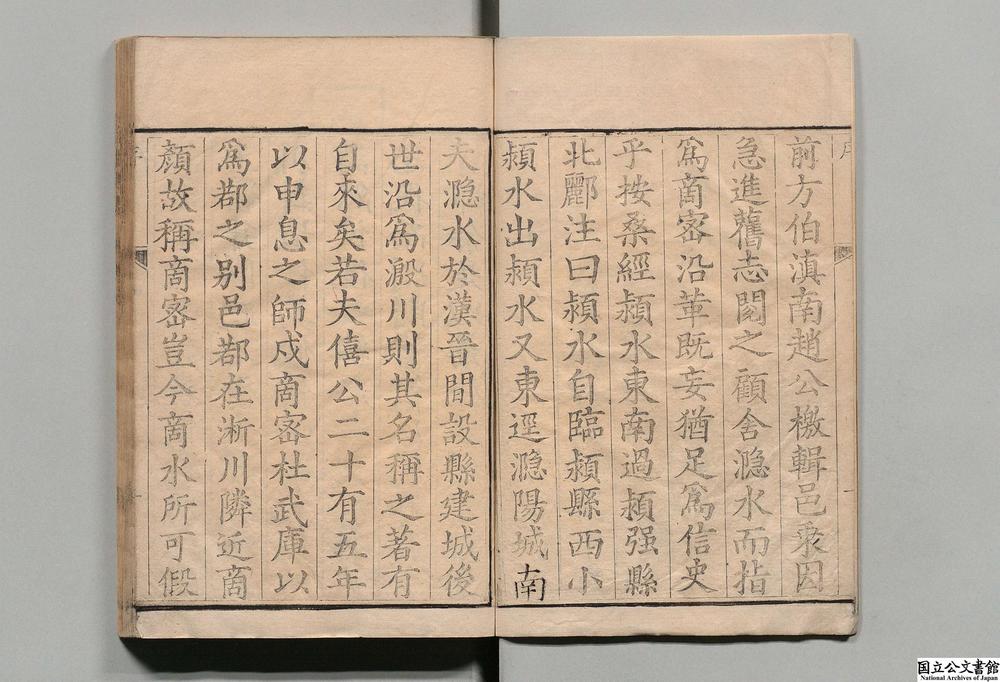 序
前方伯滇南趙公檄輯邑乘因
急進舊志閱之顧舍㶏水而指
爲商密沿革既妄猶足爲信史
乎按桑經潁水東南過潁强縣
北酈注曰潁水自臨潁縣西小
㶏水出潁水又東逕㶏陽城南
夫㶏水於漢晉間設縣建城後
世沿爲溵川則其名稱之著有
自來矣若夫僖公二十有五年
以申息之師戍商密杜武庫以
爲鄀之别邑鄀在淅川隣近商
顏故稱商密豈今商水所可假
国立公文書館
National Archives of Japan